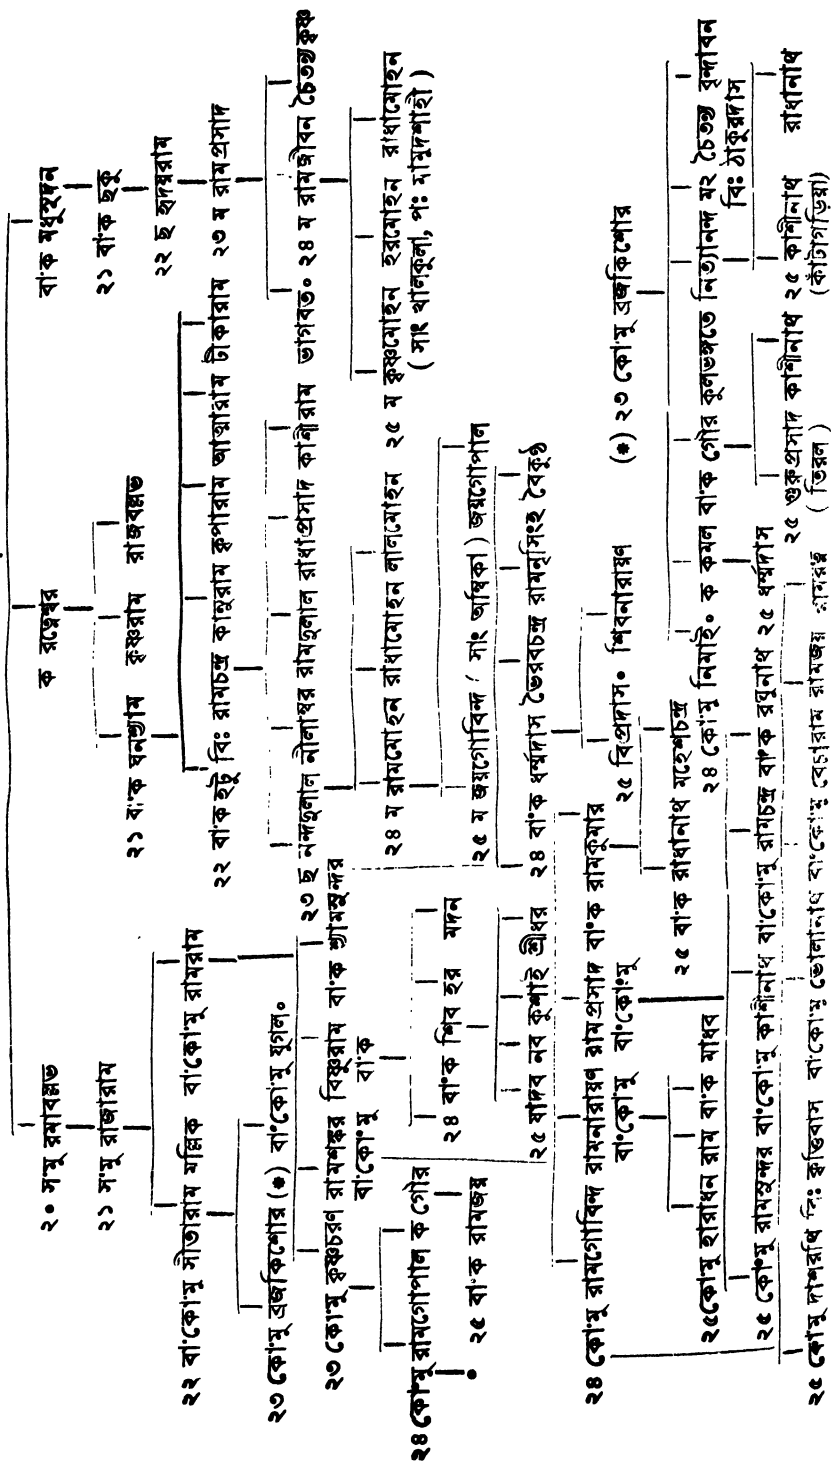 ২০ স'মু রমাবল্লভ ক রত্নেশ্বর বা'ক মধুসূদন
২১ স'মু রাজারাম ২১ বা'ক ঘনশ্যাম কৃষ্ণরাম রাজবল্লভ ২১ বা'ক ছকু
২২ বা'কো'মু সীতারাম মল্লিক বা'কো'মু রামরাম ২২ বা'ক হটু বিঃ রামচন্দ্র কানুরাম কৃপারাম আত্মারাম টীকারাম
২২ ছ হৃদয়রাম
২৩ ম রামপ্রসাদ
২৩ কো'মু ব্রজকিশোর (*) বা'কো'মু যুগল॰
২৩ ছ নন্দদুলাল নীলাম্বর রামদুলাল রাধাপ্রসাদ কাশীরাম ভাগবত॰ ২৪ ম রামজীবন চৈতন্যকৃষ্ণ
২৩ কো'মু কৃষ্ণচরণ রামশঙ্কর বিষ্ণুরাম বা'ক শ্যামসুন্দর
বা'কো'মু বা'ক
২৪ ম রামমোহন রাধামোহন লালমোহন ২৫ ম কৃষ্ণমোহন হরমোহন রাধামোহন
( সাং খালকুলা, পঃ মামুদশাহী )
২৪ কো'মু রামগোপাল ক গৌর ২৪ বা'ক শিব হর মদন
২৫ ম জয়গোবিন্দ ( সাং অম্বিকা ) জয়গোপাল
২৫ বা'ক রামজয় ২৫ যাদব নব কুশাই শ্রীধর
২৪ বা'ক ধর্ম্মদাস ভৈরবচন্দ্র রামনৃসিংহ বৈকুণ্ঠ
২৪ কো'মু রামগোবিন্দ রামনারায়ণ রামপ্রসাদ বা'ক রামকুমার
বা'কো'মু বা'কো'মু
২৫ বিপ্রদাস॰ শিবনারায়ণ (*) ২৩ কো'মু ব্রজকিশোর
২৫ বা'ক রাধানাথ মহেশচন্দ্র
২৫ কো'মু হারাধন রাম বা'ক মাধব
২৪ কো'মু নিমাই॰ ক কমল বা'ক গৌর কুলভঙ্গতে নিত্যানন্দ ম২ চৈতন্য বৃন্দাবন
বিঃ ঠাকুরদাস
২৫ কো'মু রামসুন্দর বা'কো'মু কাশীনাথ বা'কো'মু রামচন্দ্র বা'ক রঘুনাথ ২৫ ধর্ম্মদাস
২৫ গুরুপ্রসাদ কাশীনাথ ২৫ কাশীনাথ রাধানাথ
( তিরল ) (কাঁটাগড়িয়া)
২৫ কো'মু দাশরথি কৃত্তিবাস বা'কো'মু ভোলানাথ বা'কো'মু বেচারাম রামজয় রামরত্ন